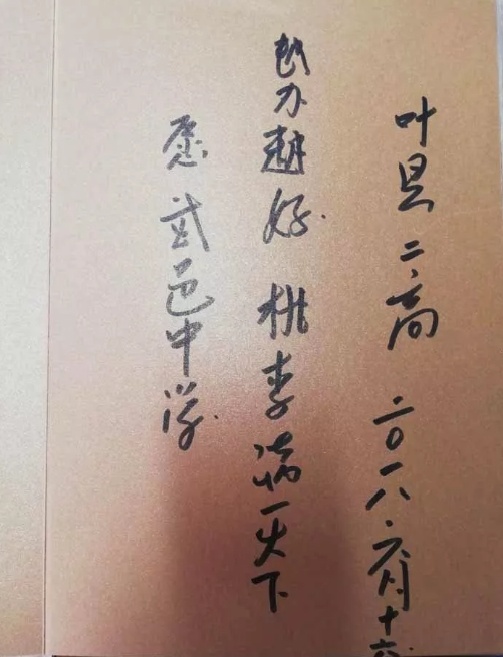 愿武邑中学
越办越好 桃李满天下
叶县二高 二〇一八.六月十六